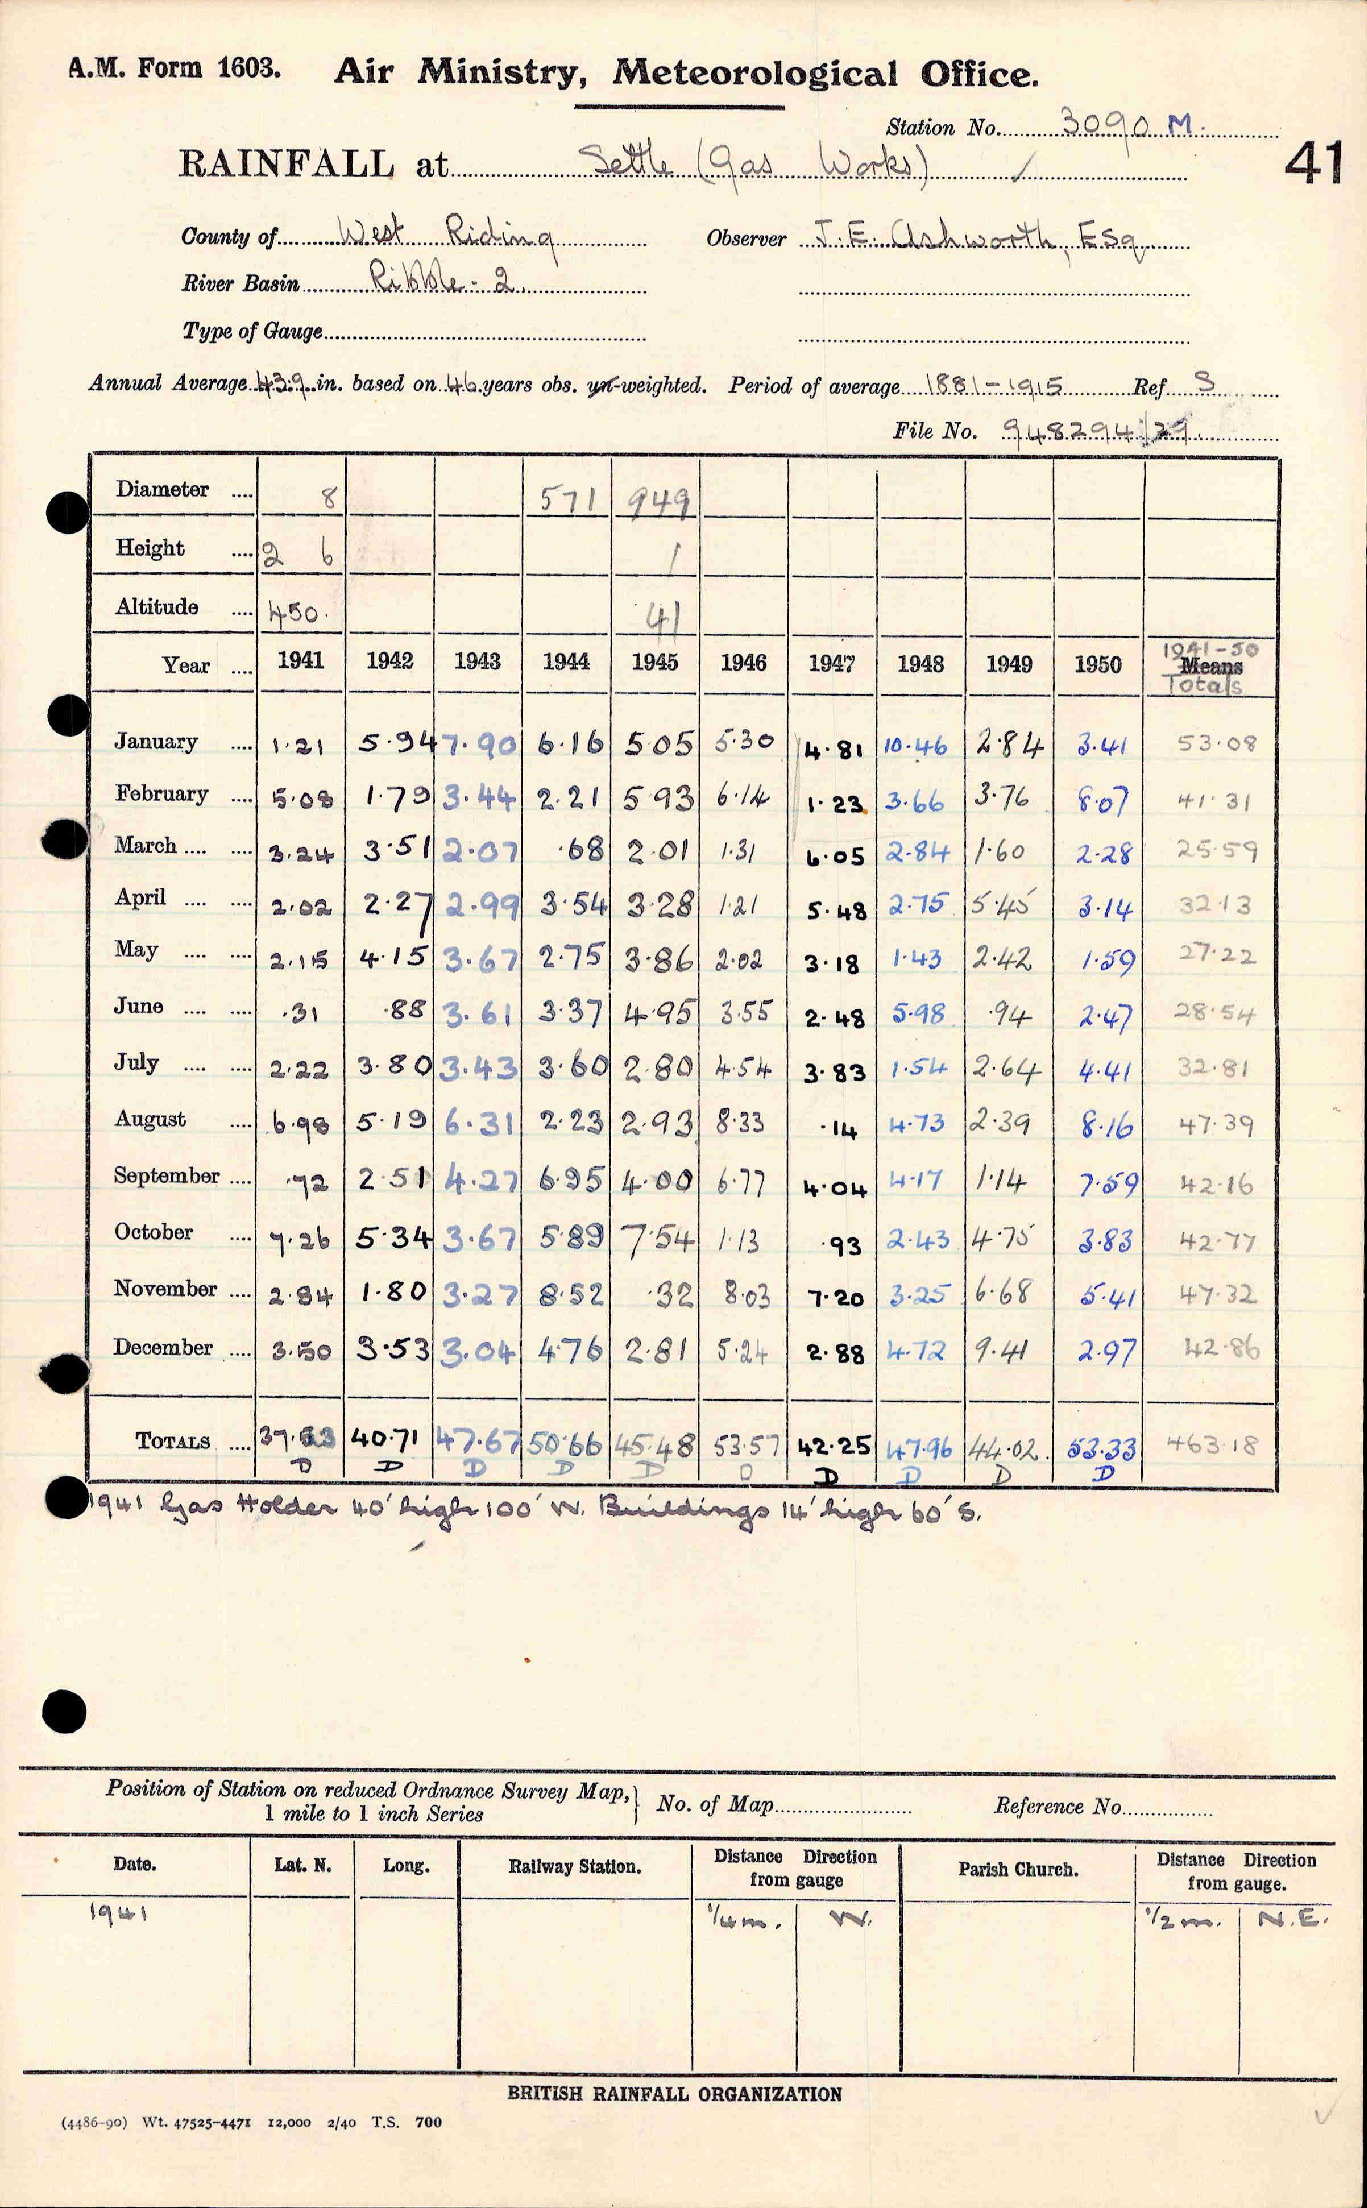 A.M. Form 1603. Air Ministry, Meteorological Office.
Station No. 3090 M.
41
RAINFALL at Settle (Gas Works) ✓
County of West Riding Observer J. E. Ashworth, Esq
River Basin Ribble - 2.
Type of Gauge
Annual Average 43.9 in. based on 46 years obs. un-weighted. Period of average 1881-1915 Ref S
File No. 948294/29
Diameter .... 8 571 949
Height .... 2 6 1
Altitude .... 450. 41
Year .... 1941 1942 1943 1944 1945 1946 1947 1948 1949 1950 1941-50 Means Totals
January .... 1.21 5.94 7.90 6.16 5.05 5.30 4.81 10.46 2.84 3.41 53.08
February .... 5.08 1.79 3.44 2.21 5.93 6.14 1.23 3.66 3.76 8.07 41.31
March .... .... 3.24 3.51 2.07 .68 2.01 1.31 6.05 2.84 1.60 2.28 25.59
April .... .... 2.02 2.27 2.99 3.54 3.28 1.21 5.48 2.75 5.45 3.14 32.13
May .... .... 2.15 4.15 3.67 2.75 3.86 2.02 3.18 1.43 2.42 1.59 27.22
June .... .... .31 .88 3.61 3.37 4.95 3.55 2.48 5.98 .94 2.47 28.54
July .... .... 2.22 3.80 3.43 3.60 2.80 4.54 3.83 1.54 2.64 4.41 32.81
August .... 6.98 5.19 6.31 2.23 2.93 8.33 .14 4.73 2.39 8.16 47.39
September .... .72 2.51 4.27 6.95 4.00 6.77 4.04 4.17 1.14 7.59 42.16
October .... 7.26 5.34 3.67 5.89 7.54 1.13 .93 2.43 4.75 3.83 42.77
November .... 2.84 1.80 3.27 8.52 .32 8.03 7.20 3.25 6.68 5.41 47.32
December .... 3.50 3.53 3.04 4.76 2.81 5.24 2.88 4.72 9.41 2.97 42.86
TOTALS .... 37.53 40.71 47.67 50.66 45.48 53.57 42.25 47.96 44.02. 53.33 463.18
D D D D D D D D D D
1941 Gas Holder 40' high 100' W. Buildings 14' high 60' S.
Position of Station on reduced Ordnance Survey Map, 1 mile to 1 inch Series } No. of Map Reference No.
Date. Lat. N. Long. Railway Station. Distance Direction from gauge Parish Church. Distance Direction from gauge.
1941 1/4 m. W. 1/2 m. N.E.
BRITISH RAINFALL ORGANIZATION
(4486-90) Wt. 47525-4471 12,000 2/40 T.S. 700